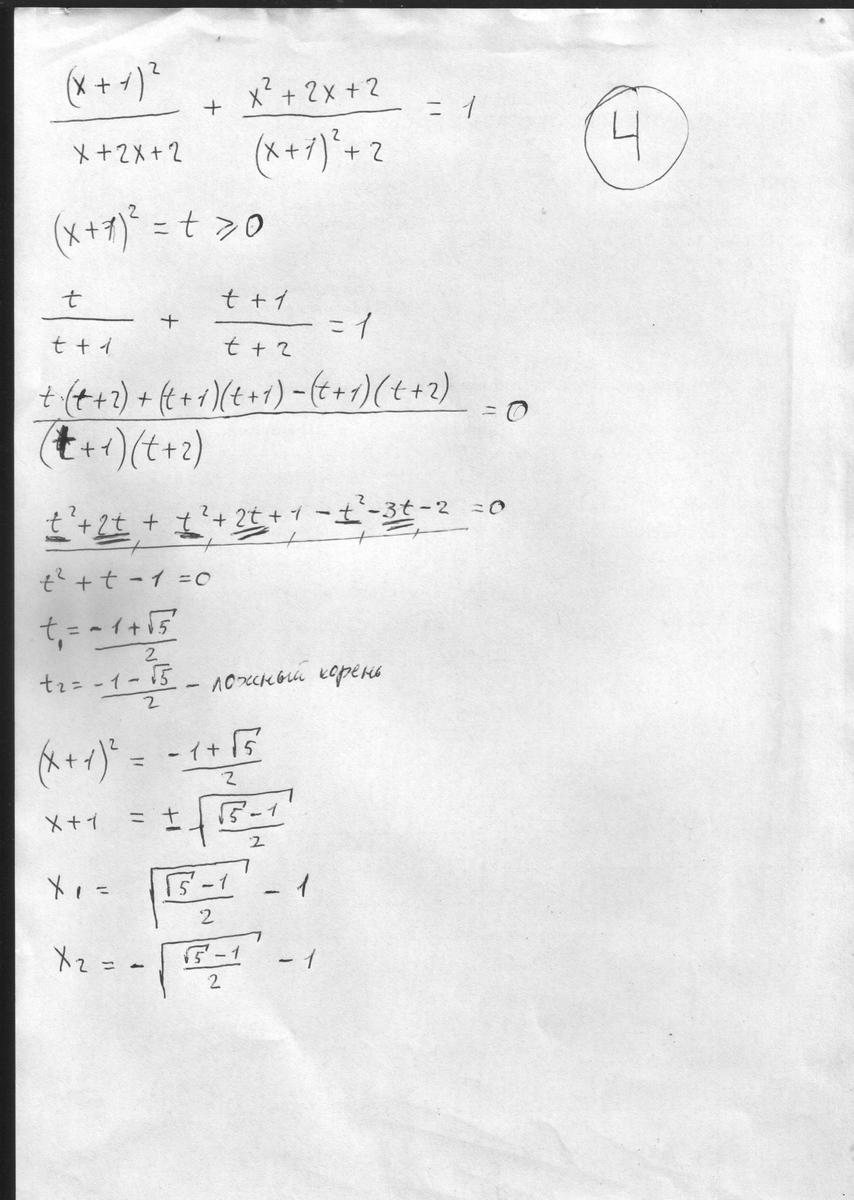 (x+1)²/(x+2x+2) + (x²+2x+2)/((x+1)²+2) = 1
4
(x+1)² = t ⩾ 0
t/(t+1) + (t+1)/(t+2) = 1
(t·(t+2)+(t+1)(t+1)-(t+1)(t+2))/((t+1)(t+2)) = 0
t²+2t + t²+2t+1-t²-3t-2 = 0
t²+t-1=0
t₁ = (-1+√5)/2
t₂ = (-1-√5)/2 - ложный корень
(x+1)² = (-1+√5)/2
x+1 = ±√((√5-1)/2)
x₁ = √((√5-1)/2) - 1
x₂ = -√((√5-1)/2) - 1